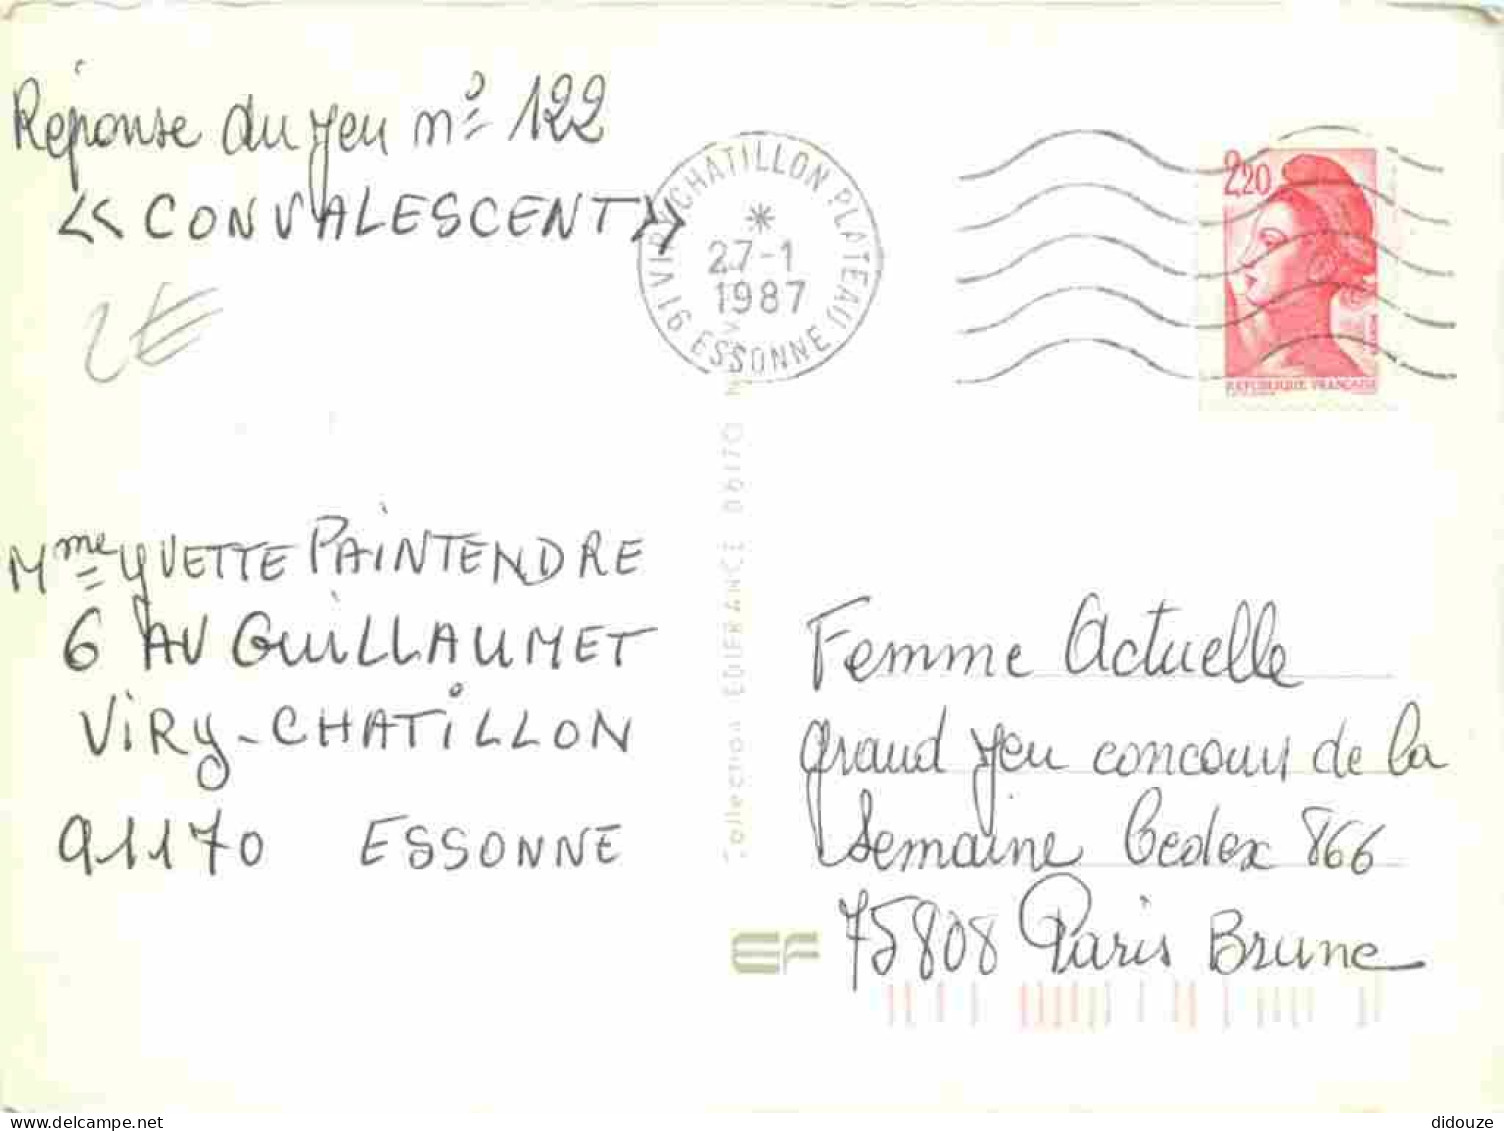 Réponse du jeu n° 122
« CONVALESCENT »
2€
Mme YVETTE PAINTENDRE
6 AV GUILLAUMET
VIRY-CHATILLON
91170 ESSONNE
91 VIRY CHATILLON PLATEAU
*
27-1
1987
ESSONNE
2,20
REPUBLIQUE FRANÇAISE
Collection EDIFRANCE 06170
EF
Femme Actuelle
grand jeu concours de la
Semaine Cedex 866
75808 Paris Brune
delcampe.net
didouze